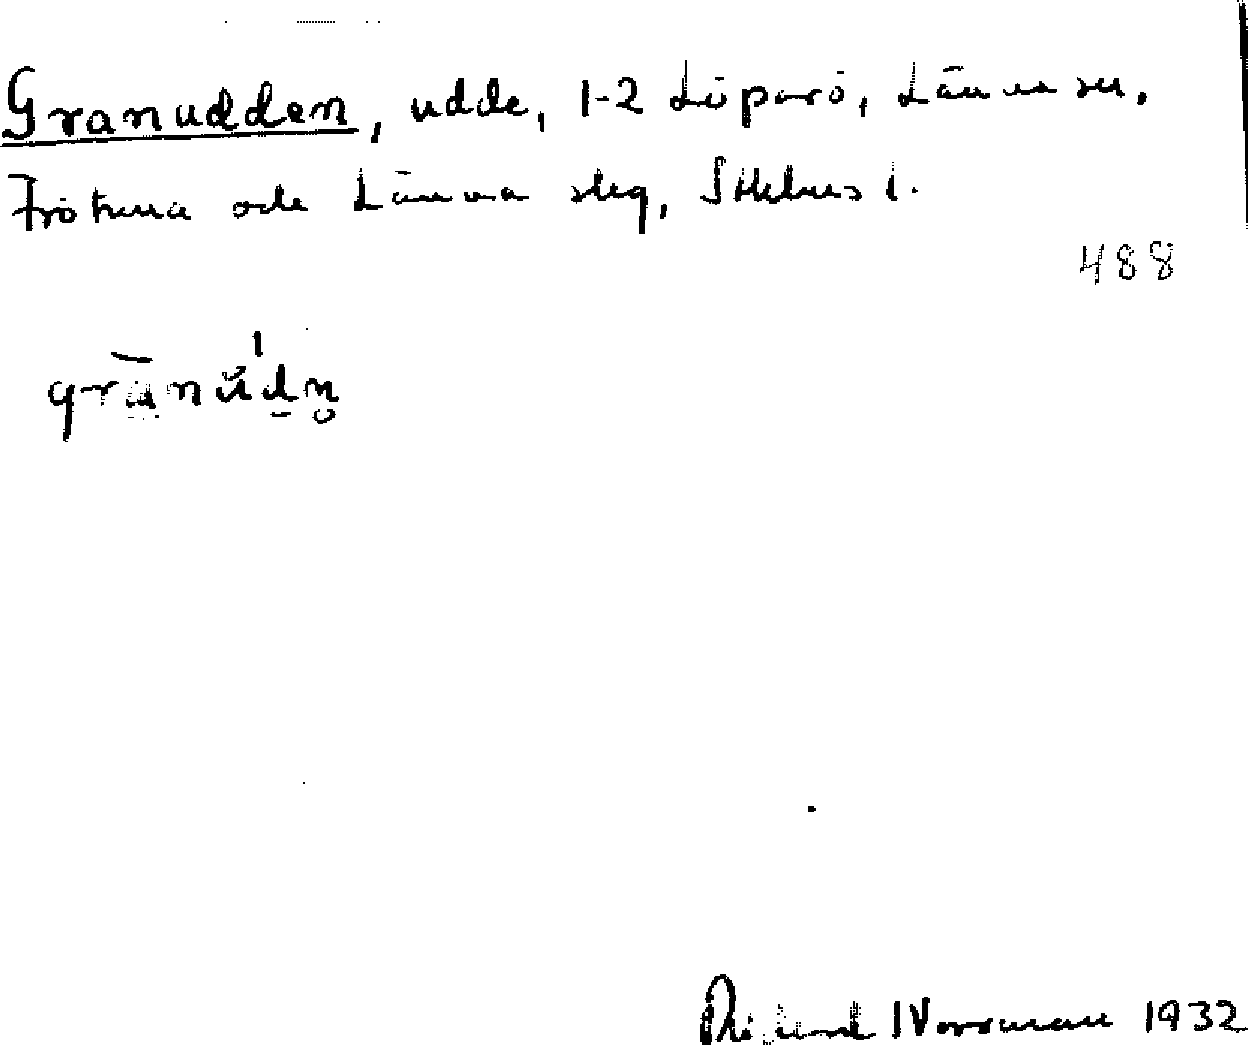 Granudden, udde, 1-2 Löparö, Länna sn.
Frötuna och Länna slg, Sthlms l.
488
granŭdn̥
Rikard Norrman 1932